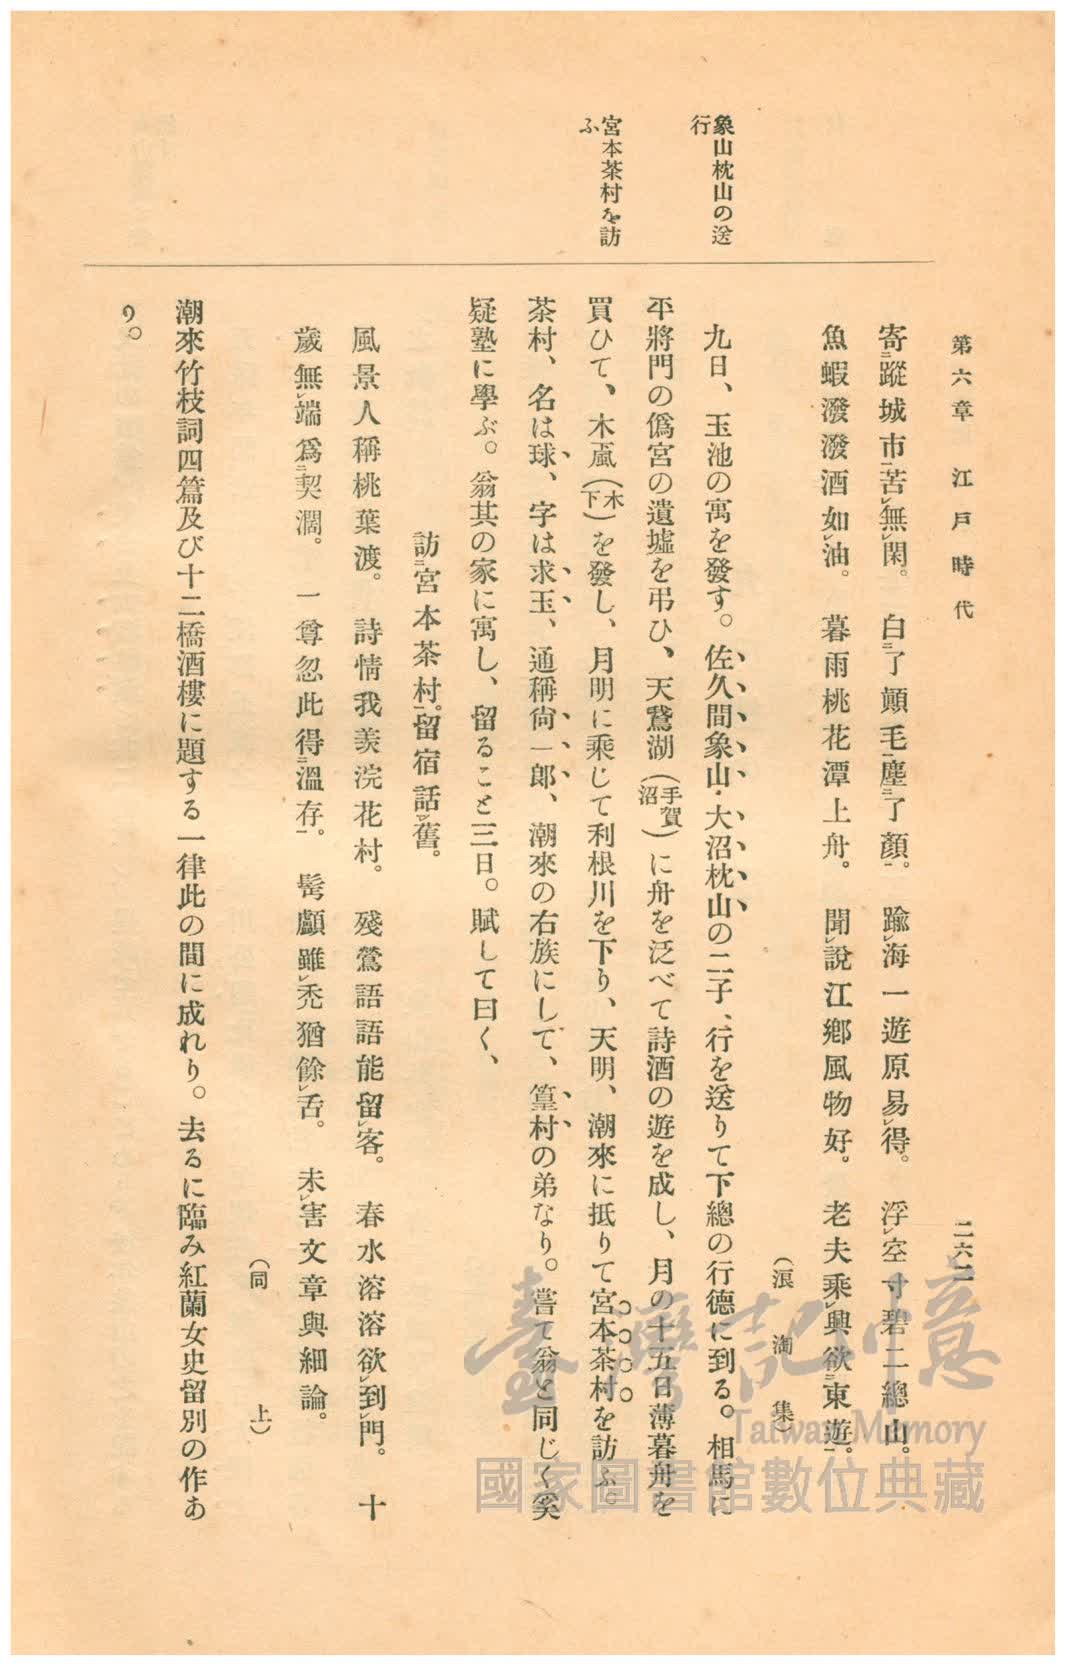 第六章 江戸時代
二六二
象山枕山の送
行
宮本茶村を訪
ふ
寄蹤城市苦無閑。 白了顚毛塵了顏。 踰海一遊原易得。 浮空寸碧二總山。
魚蝦潑潑酒如油。 暮雨桃花潭上舟。 聞說江鄕風物好。 老夫乘興欲東遊。
(浪淘集)
九日、玉池の寓を發す。佐久間象山・大沼枕山の二子、行を送りて下總の行德に到る。相馬に
平將門の僞宮の遺墟を弔ひ、天鵞湖(手賀沼)に舟を泛べて詩酒の遊を成し、月の十五日薄暮舟を
買ひて、木颪(木下)を發し、月明に乘じて利根川を下り、天明、潮來に抵りて宮本茶村を訪ふ。
茶村、名は球、字は求玉、通稱尙一郎、潮來の右族にして、篁村の弟なり。嘗て翁と同じく奚
疑塾に學ぶ。翁其の家に寓し、留ること三日。賦して曰く、
訪宮本茶村。留宿話舊。
風景人稱桃葉渡。 詩情我羡浣花村。 殘鶯語語能留客。 春水溶溶欲到門。 十
歲無端爲契濶。 一尊忽此得溫存。 髩顱雖禿猶餘舌。 未害文章與細論。
(同上)
潮來竹枝詞四篇及び十二橋酒樓に題する一律此の間に成れり。去るに臨み紅蘭女史留別の作あ
り。
臺灣記憶
Taiwan Memory
國家圖書館數位典藏